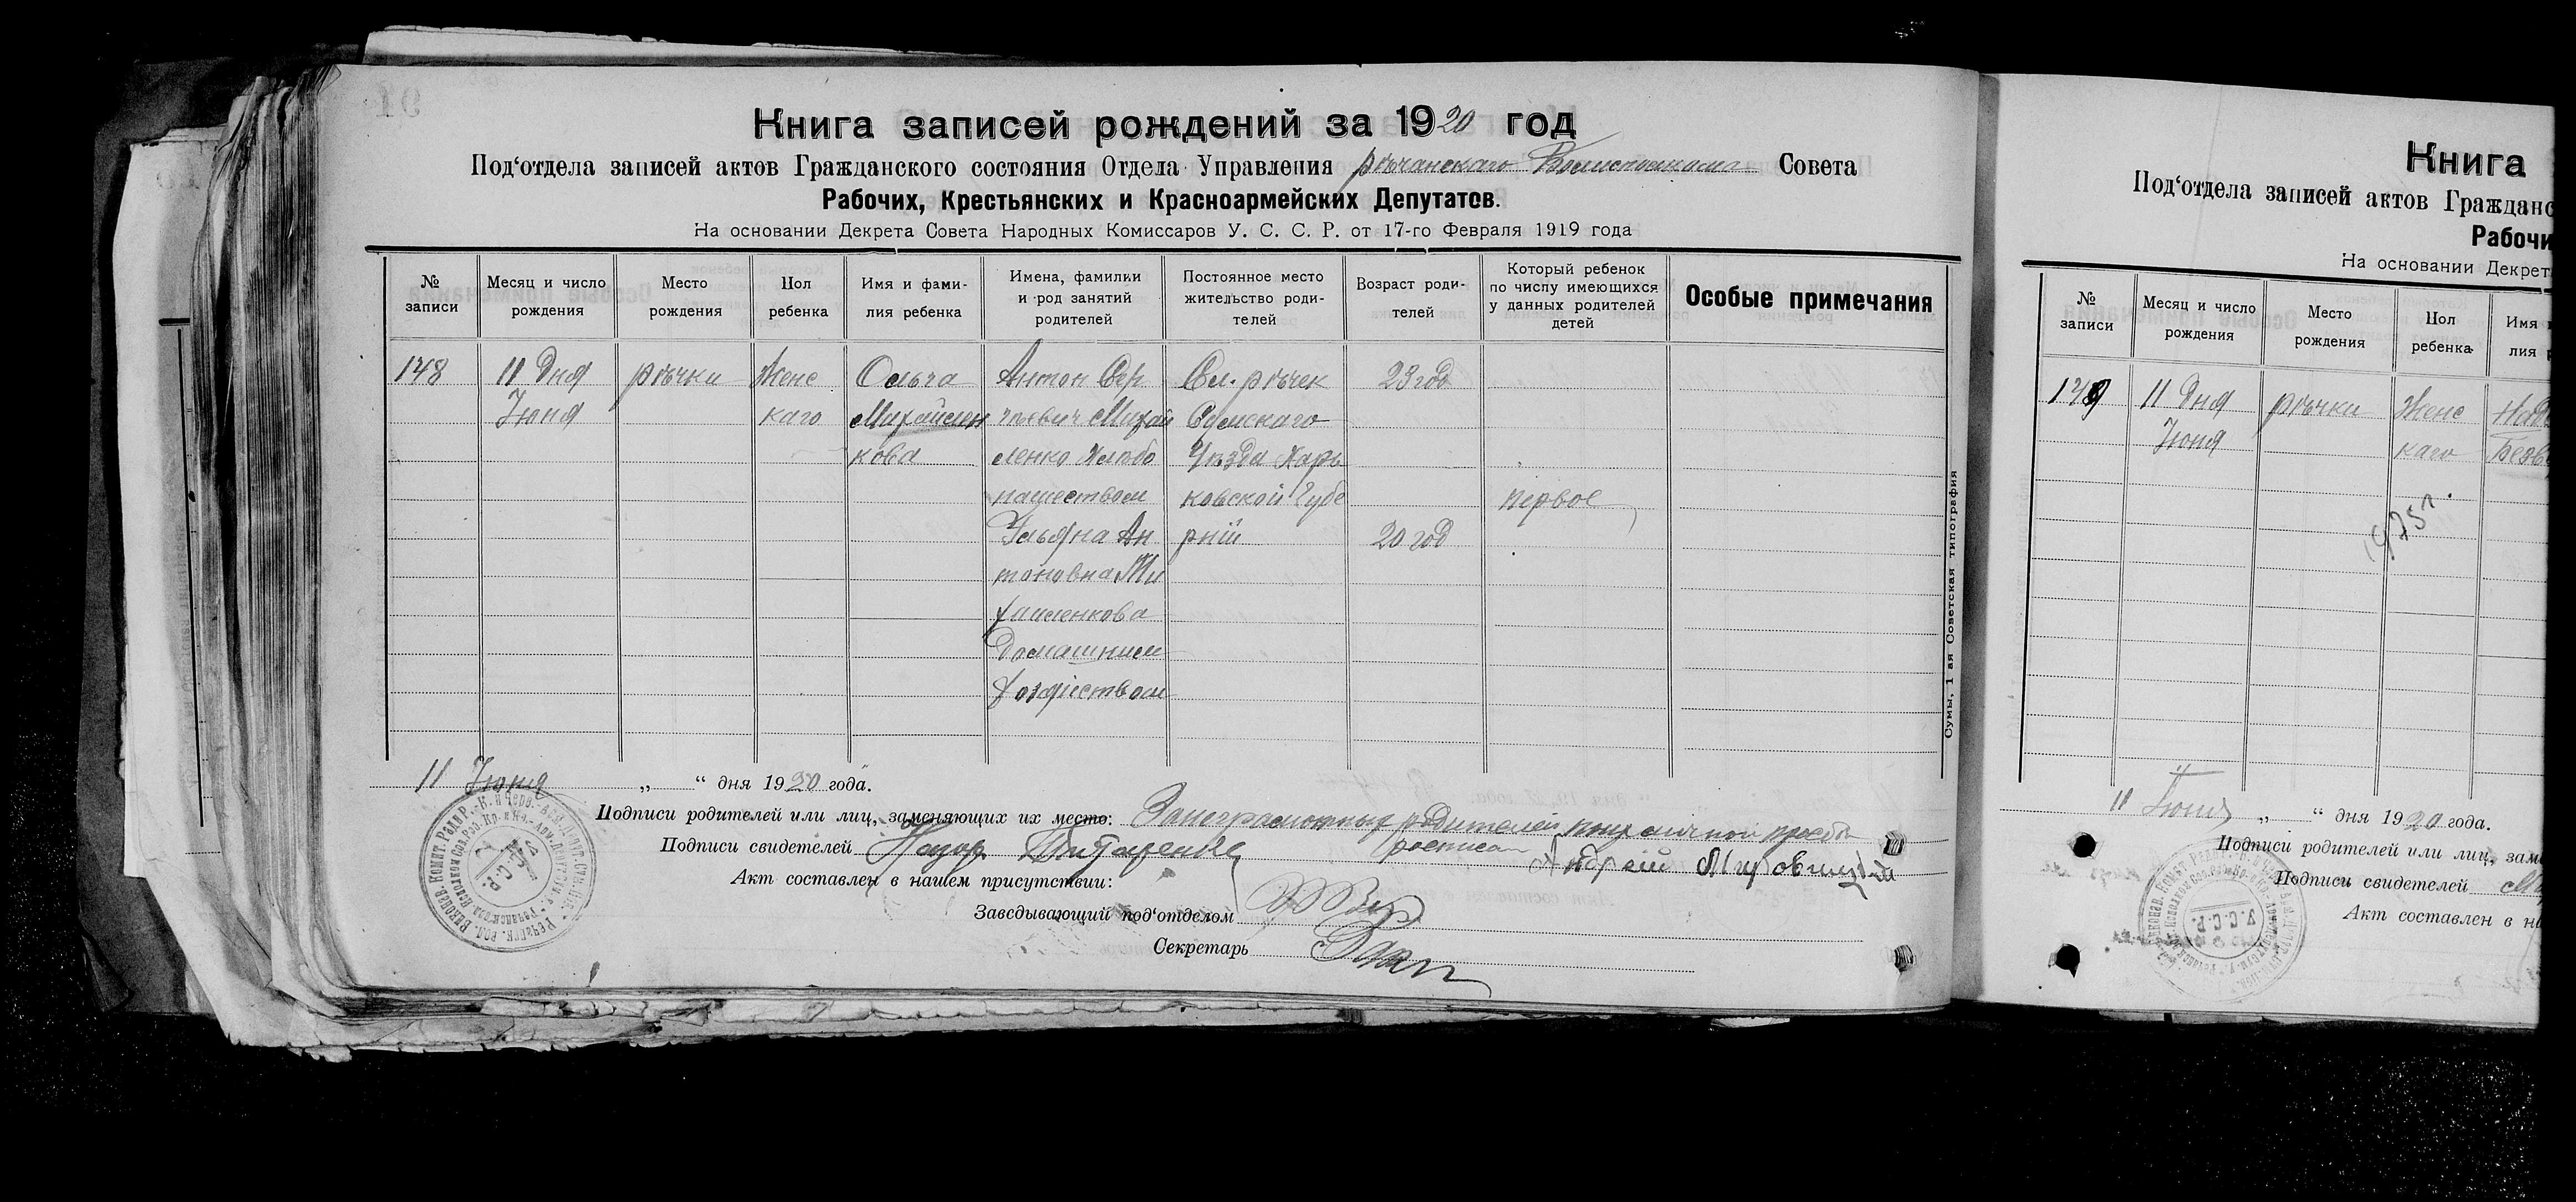 Книга записей рождений за 1920 год
Под‘отдела записей актов Гражданского состояния Отдела Управления Рѣчанскаго Волисполкома Совета
Рабочих, Крестьянских и Красноармейских Депутатов.
На основании Декрета Совета Народных Комиссаров У. С. С. Р. от 17-го Февраля 1919 года
№ записи
Месяц и число рождения
Место рождения
Пол ребенка
Имя и фами-
лия ребенка
Имена, фамилии
и род занятий
родителей
Постоянное место
жительство роди-
телей
Возраст роди-
телей
Который ребенок
по числу имеющихся
у данных родителей
детей
Особые примечания
148
11 Дня
Июня
Рѣчки
Женс
каго
Ольга
Михайлен
кова
Антон Сер
гѣевич Михай
ленко Хлѣбо
пашеством
Ульяна Ан
тоновна Ми
хайленкова
Домашним
хозяйством
Сл. Рѣчек
Сумскаго
Уѣзда Харь
ковской Губе
рніи
23 год
20 год
первое
Сумы, 1-ая Советская типография
11 Июня „ “ дня 1920 года.
Подписи родителей или лиц, заменяющих их место: родителей
Подписи свидетелей Назар Андрей
Акт составлен в нашем присутствии:
Заведывающий под‘отделом
Секретарь
Книга
Под‘отдела записей актов Гражданс
Рабочи
На основании Декрет
№ записи
Месяц и число рождения
Место рождения
Пол ребенка
Имя
лия
149
11 Дня
Июня
Рѣчки
Женс
каго
11 Июня „ “ дня 1920 года.
Подписи родителей или лиц, заме
Подписи свидетелей
Акт составлен в на
У.С.С.Р.